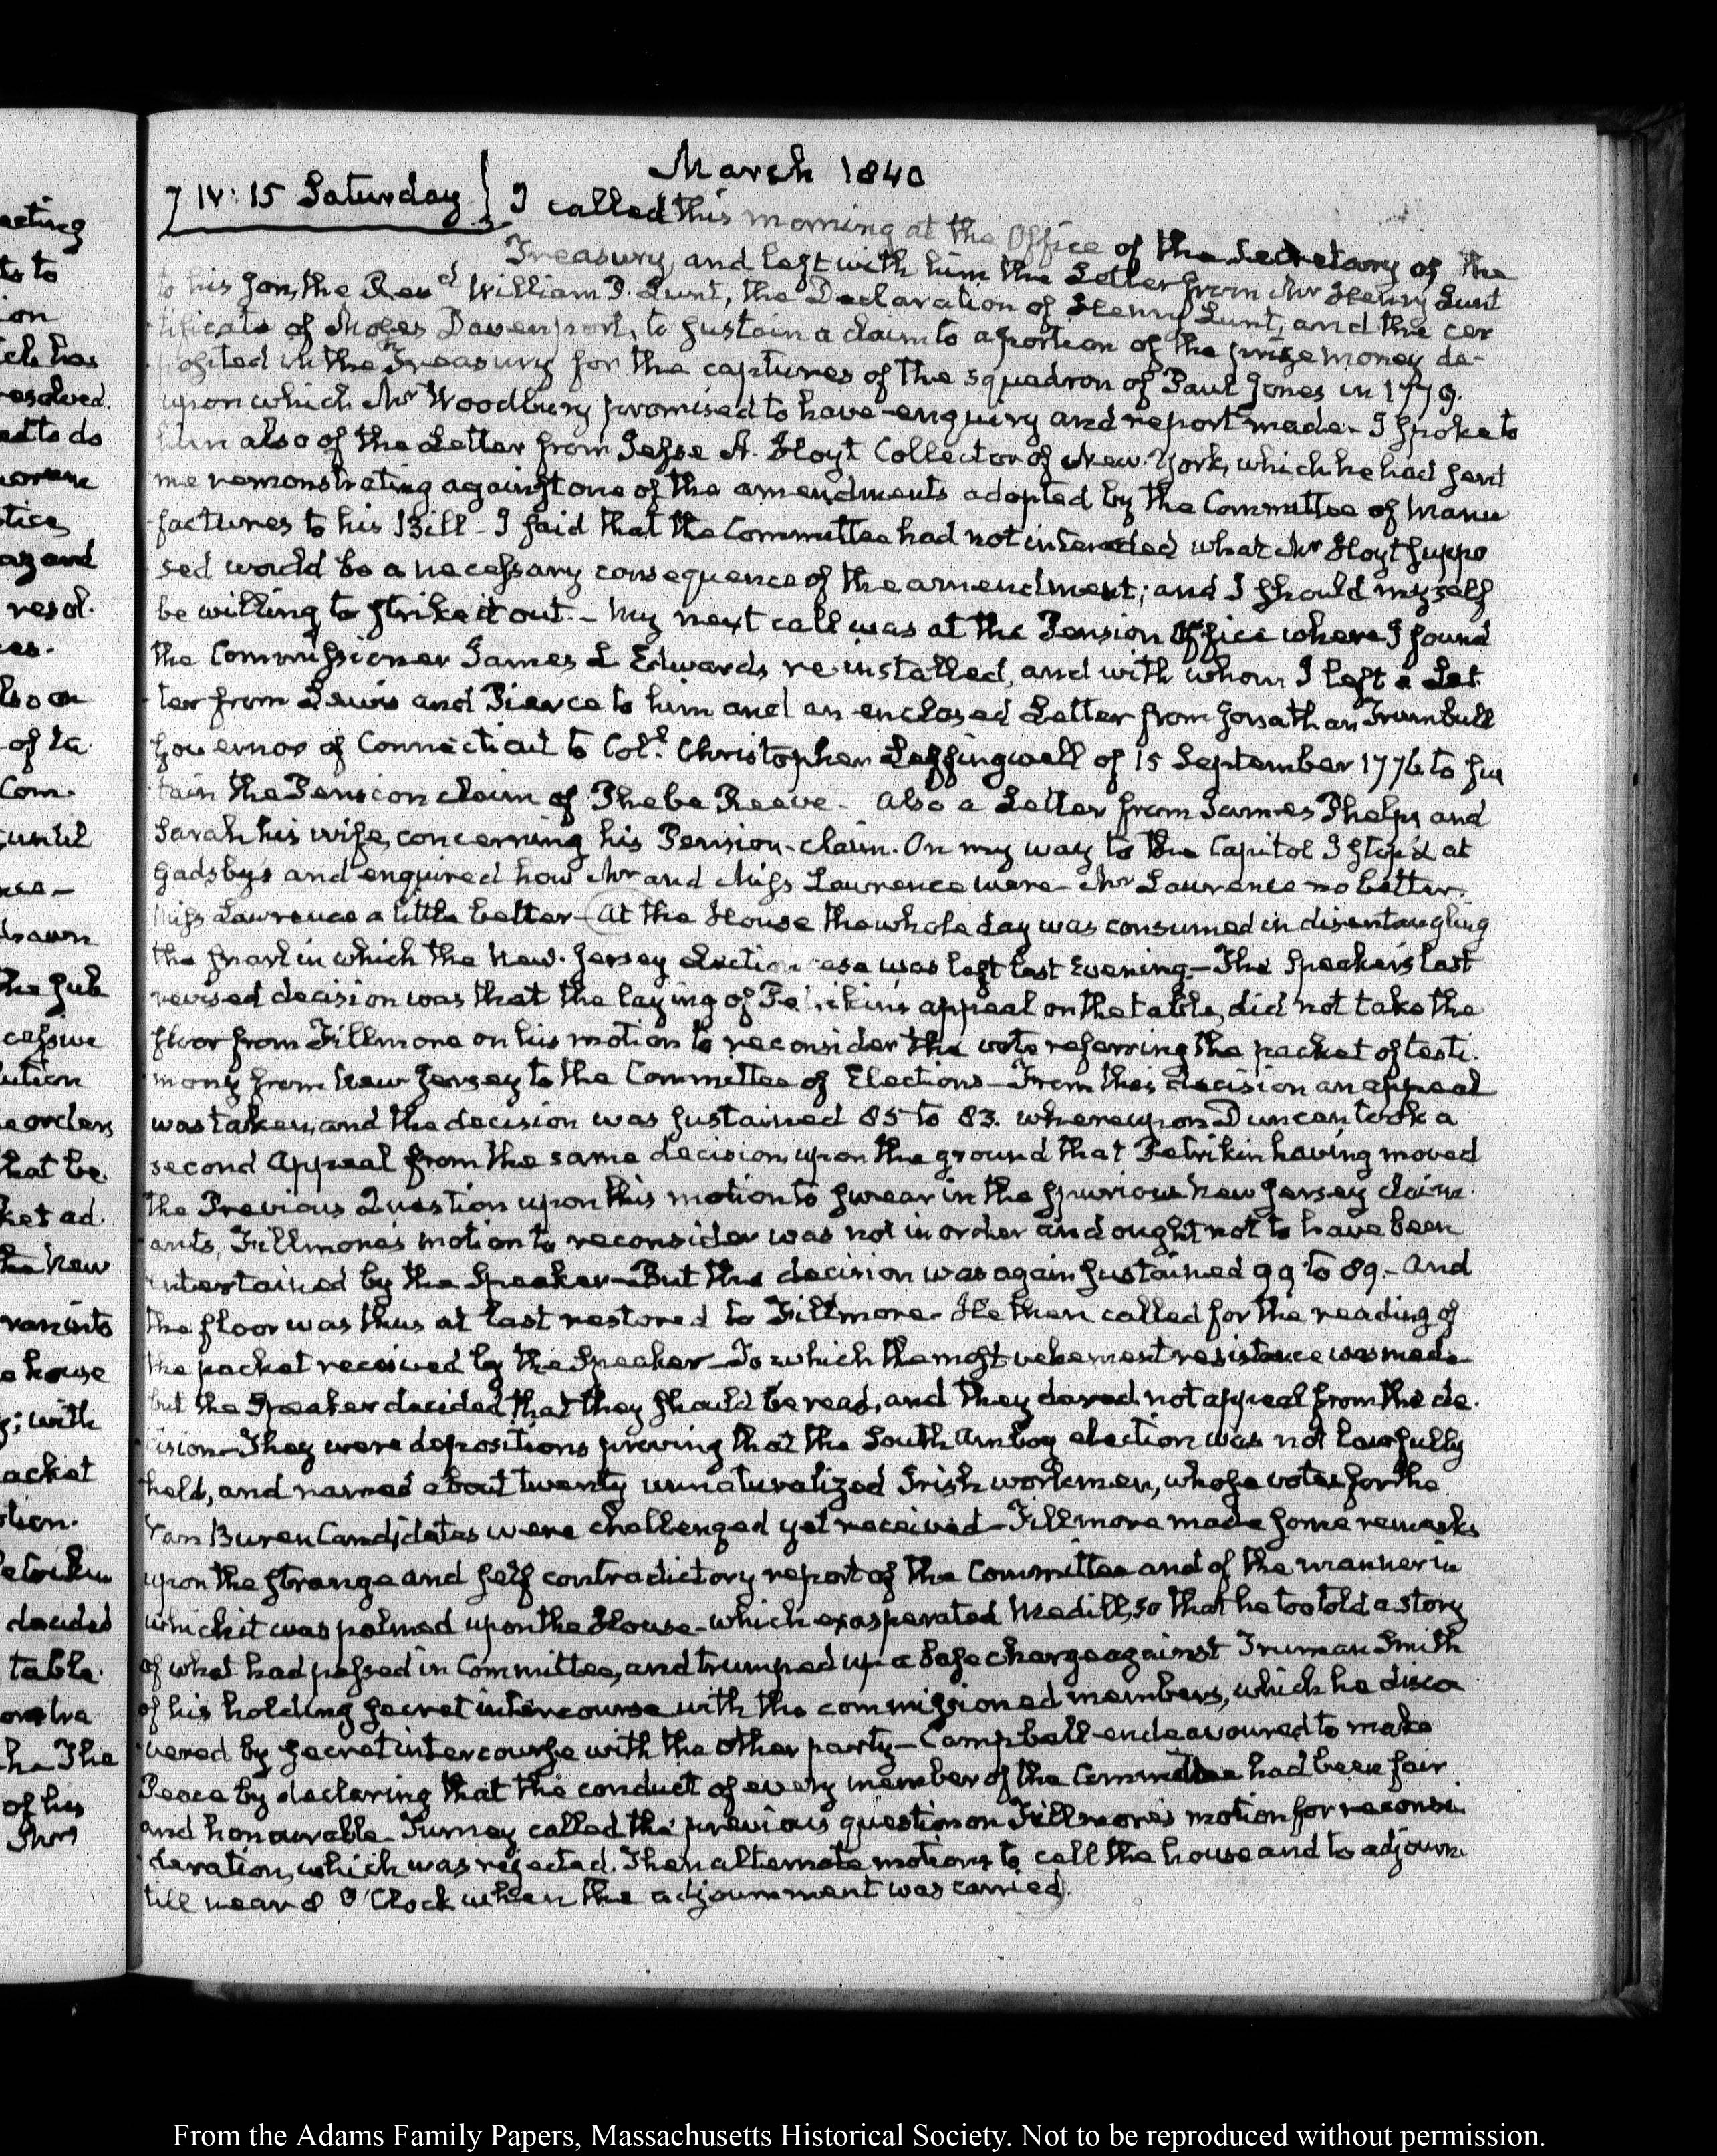 March 1840
7 IV: 15 Saturday } I called this morning at the Office of the Secretary of the
Treasury, and left with him the Letter from Mr Henry Lunt
to his Son, the Revd William P. Lunt, the Declaration of Henry Lunt, and the cer
tificate of Moses Davenport, to sustain a claim to a portion of the prize money de-
posited in the Treasury for the captures of the squadron of Paul Jones in 1779.
upon which Mr Woodbury promised to have enquiry and report made- I spoke to
him also of the Letter from Jesse A. Hoyt Collector of New-York, which he had sent
me remonstrating against one of the amendments adopted by the Committee of Manu
factures to his Bill- I said that the Committee had not intended what Mr Hoyt suppo
sed would be a necessary consequence of the amendment; and I should myself
be willing to strike it out.- My next call was at the Pension Office where I found
the Commissioner James L Edwards re-installed, and with whom I left a Let
ter from Lewis and Pierce to him and an enclosed Letter from Jonathan Trumbull
Governor of Connecticut to Coll. Christopher Leffingwell of 15 September 1776 to sus
tain the Pension claim of Phebe Reeve- Also a Letter from James Phelps and
Sarah his wife, concerning his Pension-claim. On my way to the Capitol I stop'd at
Gadsby's and enquired how Mr and Miss Lawrence were- Mr Lawrence no better-
Miss Lawrence a little better- (At the House the whole day was consumed in disentangling
the snarl in which the New-Jersey Election case was left last Evening- The Speaker's last
revised decision was that the laying of Petrikin's appeal on the table, did not take the
floor from Fillmore on his motion to reconsider the vote referring the packet of testi-
mony from New Jersey to the Committee of Elections- From this decision an appeal
was taken, and the decision was sustained 85 to 83. whereupon Duncan took a
second Appeal from the same decision, upon the ground that Petrikin having moved
the Previous Question upon his motion to swear in the spurious New Jersey claim-
ants, Fillmore's motion to reconsider was not in order and ought not to have been
entertained by the Speaker- But the decision was again sustained 99 to 89.- And
the floor was thus at last restored to Fillmore- He then called for the reading of
the packet received by the Speaker- To which the most vehement resistance was made
but the Speaker decided that they should be read, and they dared not appeal from the de-
cision- They were depositions proving that the South Amboy election was not lawfully
held, and named about twenty unnaturalized Irish workmen, whose votes for the
Van Buren Candidates were challenged yet received- Fillmore made some remarks
upon the strange and self contradictory report of the Committee and of the manner in
which it was palmed upon the House- which exasperated Medill, so that he too told a story
of what had passed in Committee, and trumped up a base charge against Truman Smith
of his holding secret intercourse with the commissioned members, which he disco
vered by secret intercourse with the other party- Campbell endeavoured to make
Peace by declaring that the conduct of every member of the Committee had been fair
and honourable- Turney called the previous question on Fillmore's motion for reconsi-
deration, which was rejected. Then alternate motions to call the house and to adjourn
till near 8 O'Clock when the adjournment was carried).
From the Adams Family Papers, Massachusetts Historical Society. Not to be reproduced without permission.